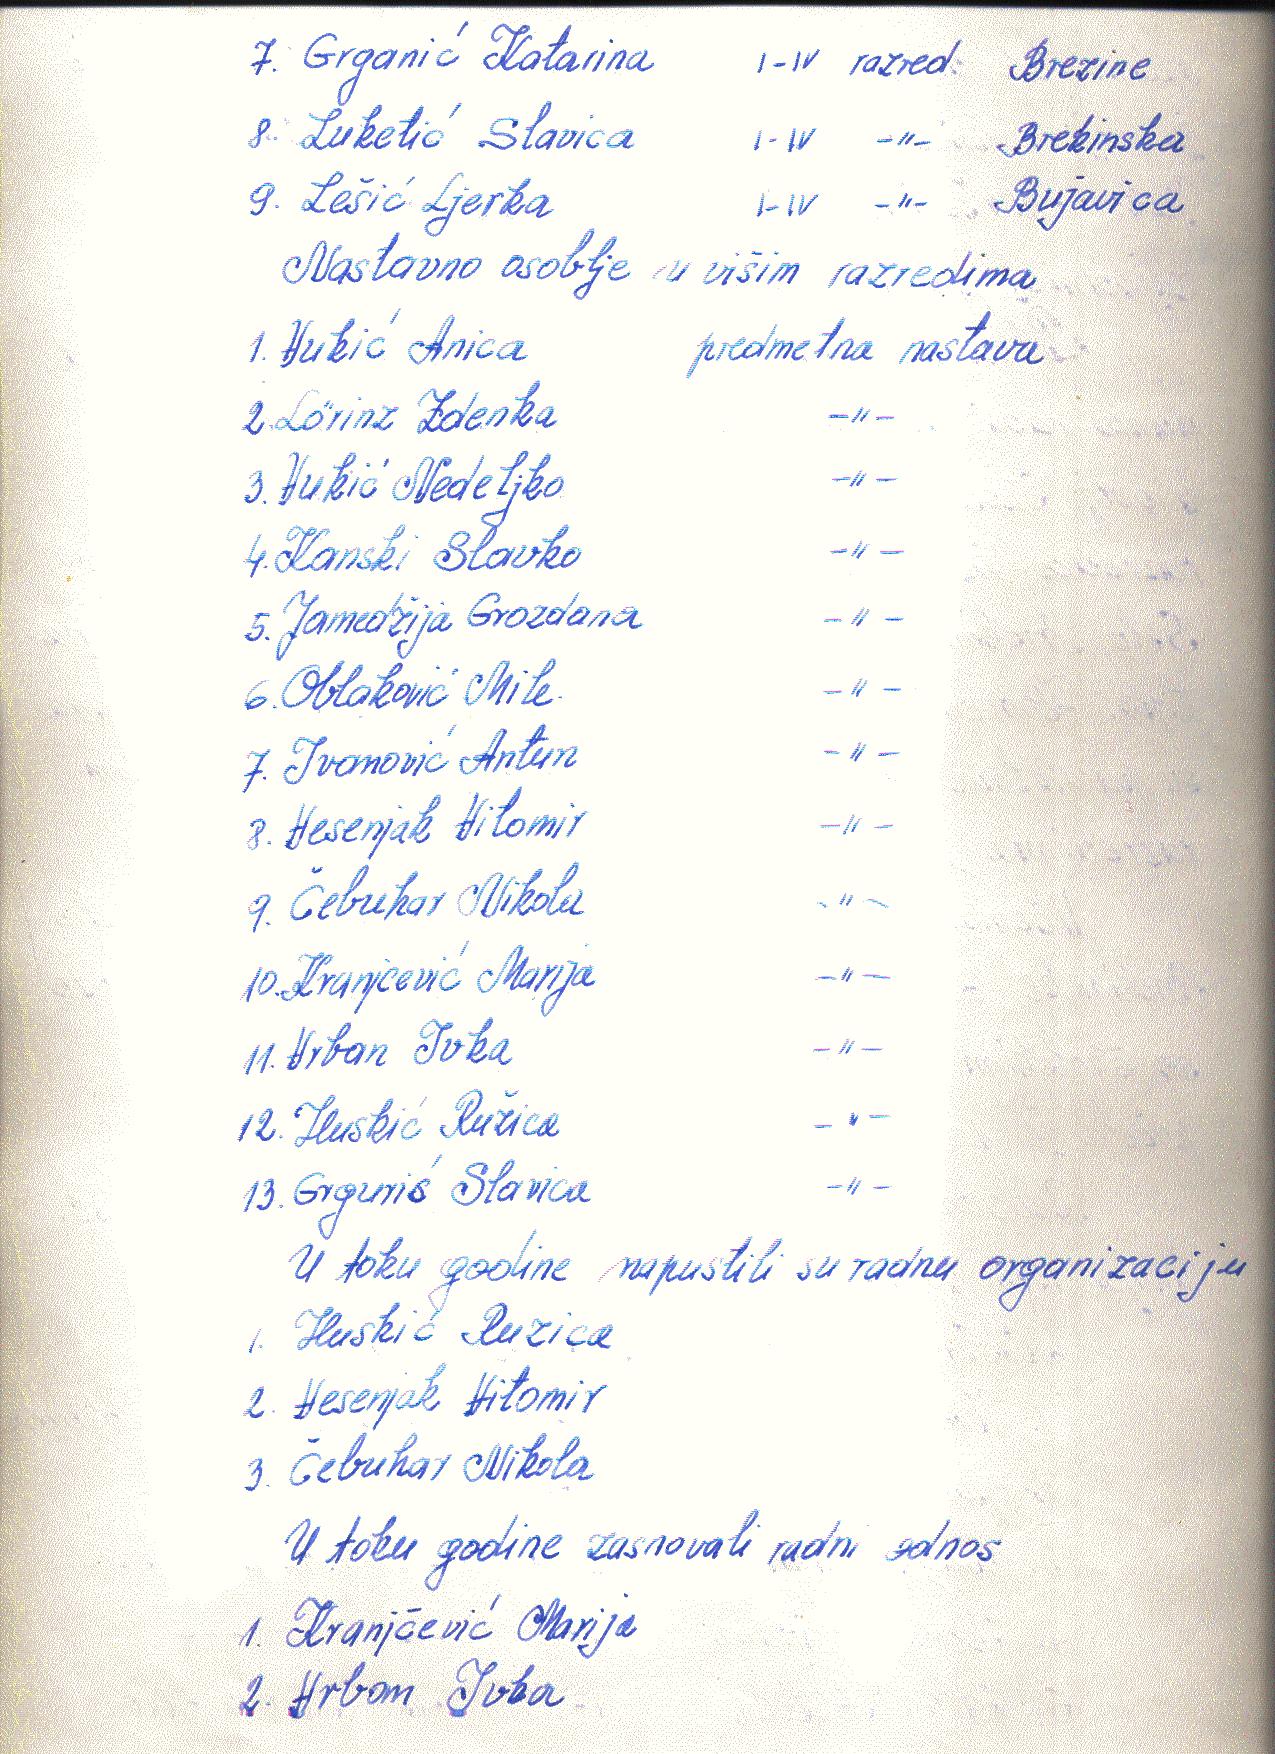 7. Grganić Katarina I-IV razred. Brezine
8. Luketić Slavica I-IV -"- Brekinska
9. Lešić Ljerka I-IV -"- Bujavica
Nastavno osoblje u višim razredima
1. Vukić Anica predmetna nastava
2. Lörinz Zdenka -"-
3. Vukić Nedeljko -"-
4. Kanski Slavko -"-
5. Jamedžija Grozdana -"-
6. Oblaković Mile -"-
7. Ivanović Antun -"-
8. Vesenjak Vitomir -"-
9. Čebuhar Nikola -"-
10. Kranjčević Marija -"-
11. Vrban Ivka -"-
12. Huskić Ružica -"-
13. Grgurić Slavica -"-
U toku godine napustili su radnu organizaciju
1. Huskić Ruzica
2. Vesenjak Vitomir
3. Čebuhar Nikola
U toku godine zasnovali radni odnos
1. Kranjčević Marija
2. Vrban Ivka